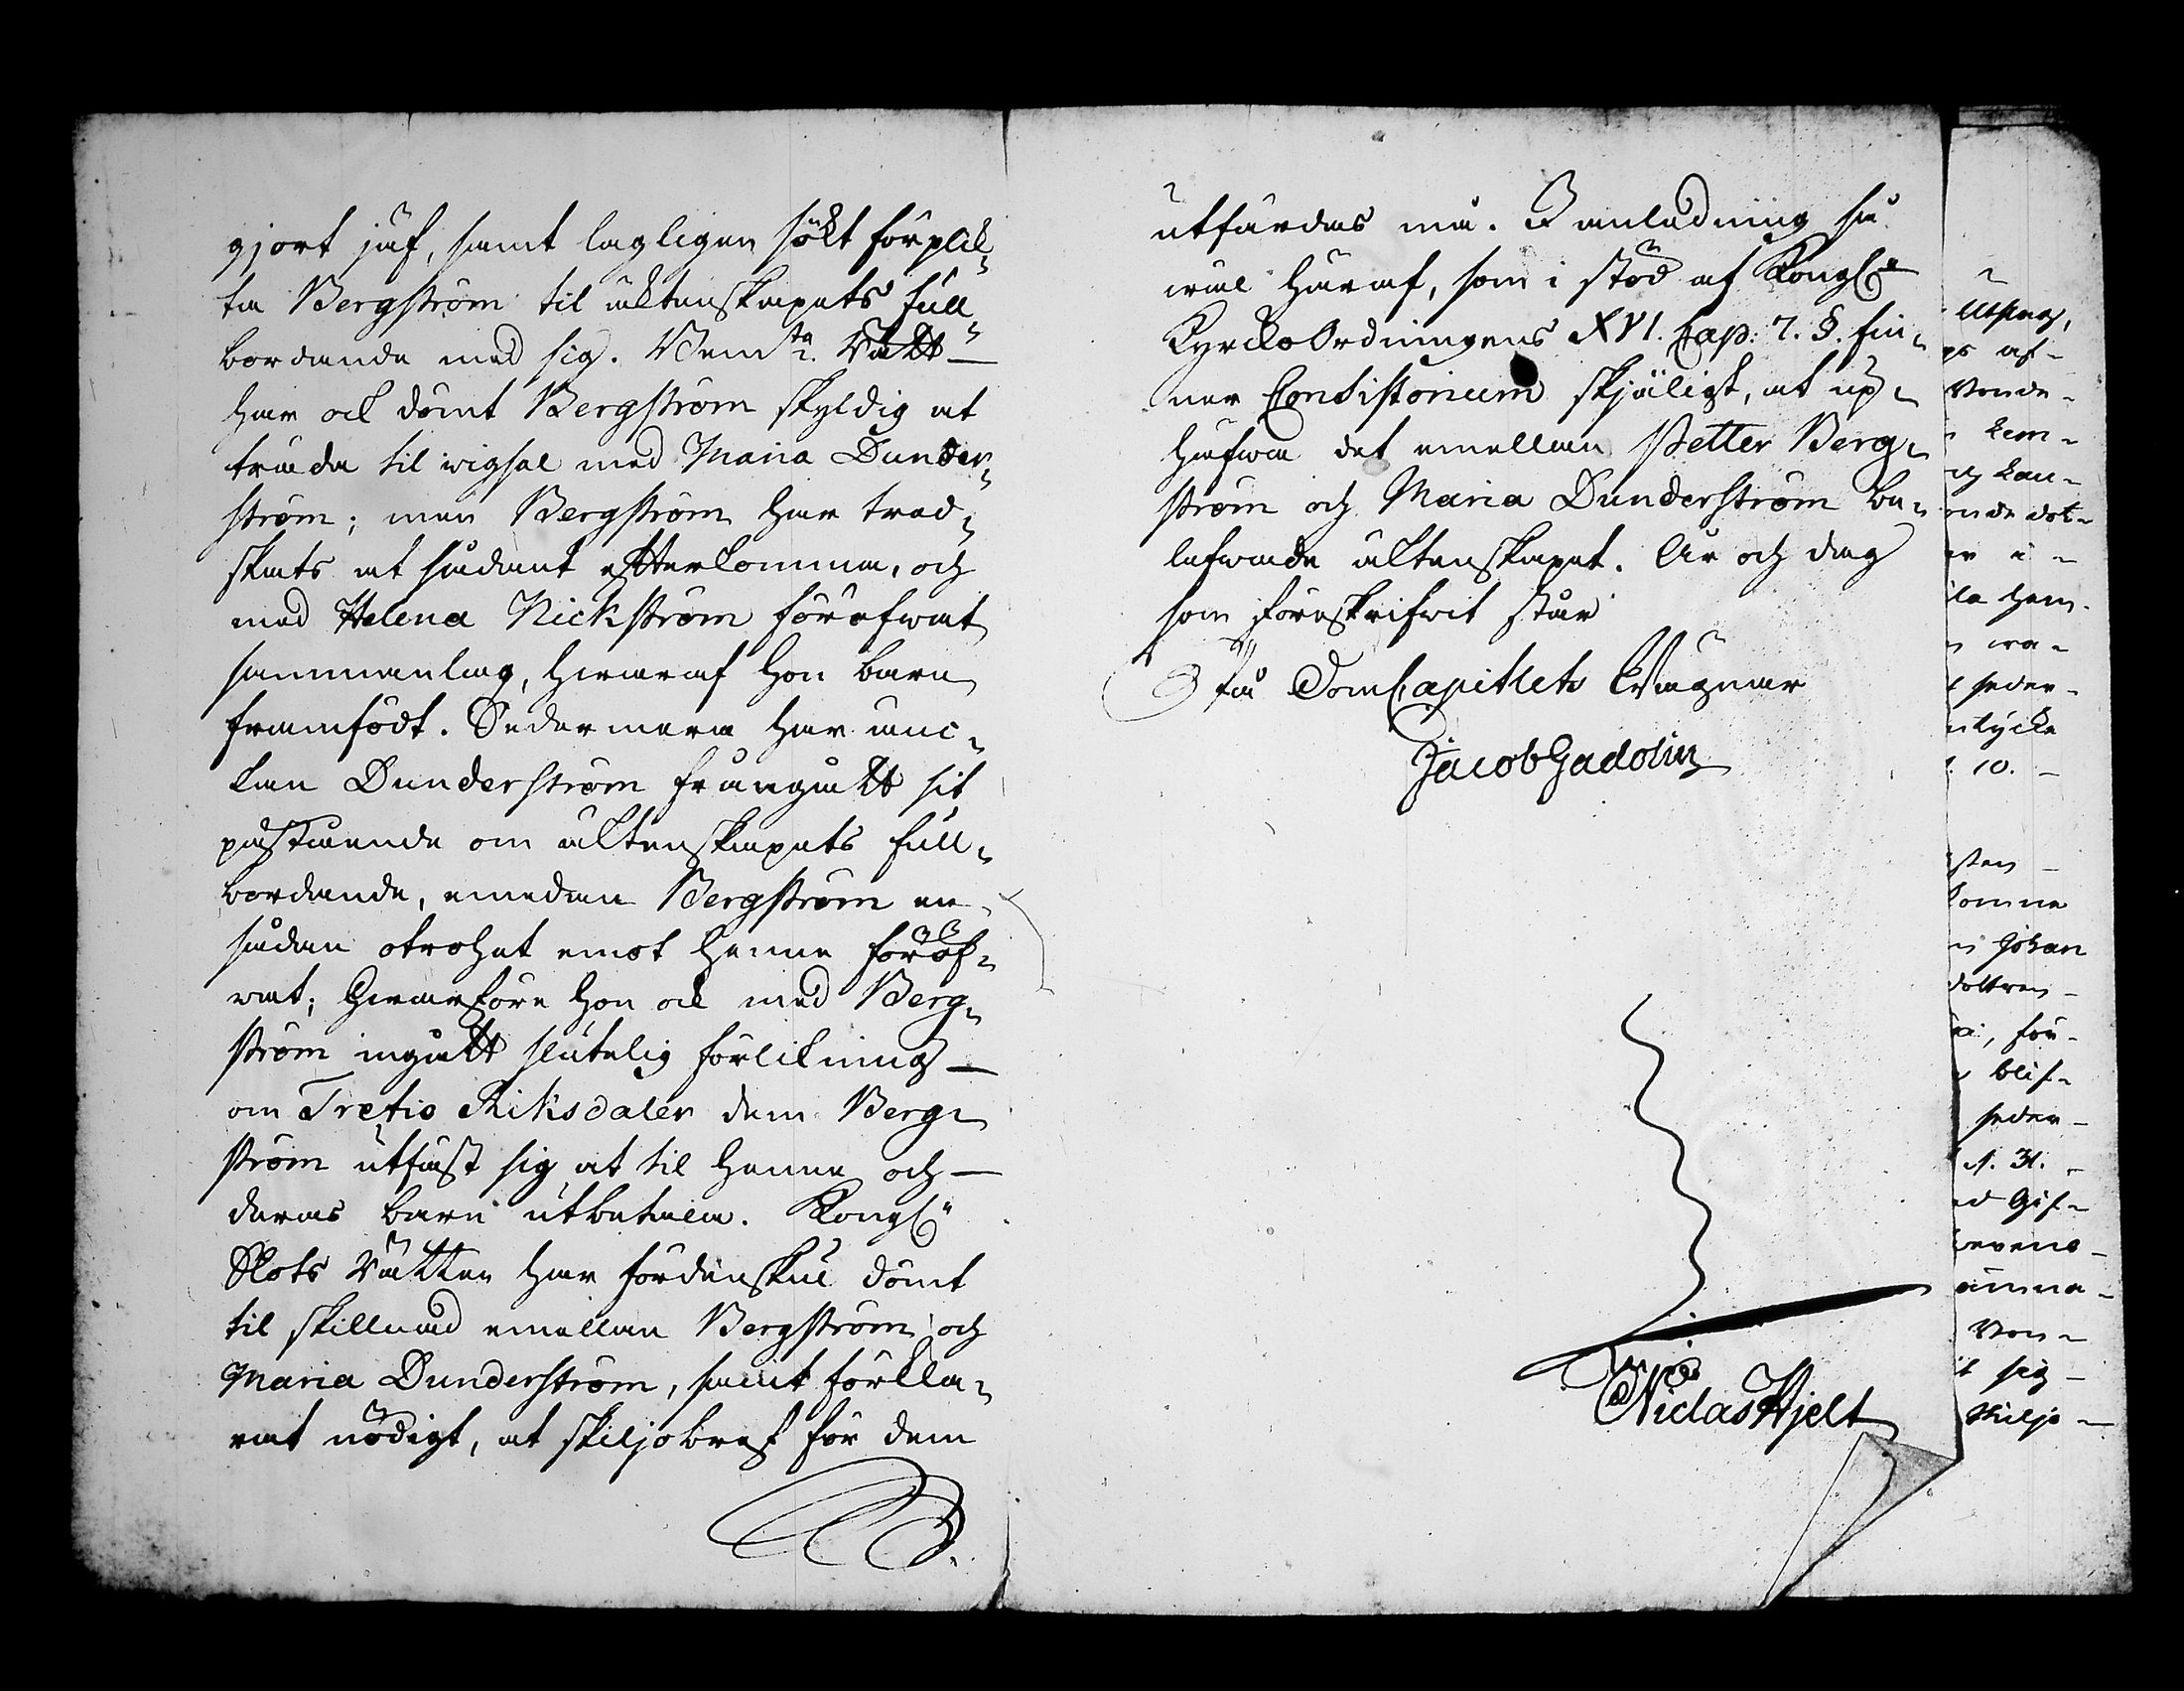 gjort jäf, samt lagligen sökt förplik-
ta Bergström til äktenskapets full-
bordande med sig. Bem:te Rätt
har ock dömt Bergström skyldig at
träda til wigsel med Maria Dunder-
ström; men Bergström har tred-
skats at sådant efterkomma, och
med Helena Nickström föröfwat
sammanlag, hwaraf hon barn
framfödt. Sedermera har änc-
kan Dunderström frångått sit
påstående om äktenskapets full-
bordande, emedan Bergström en
sådan otrohet emot henne föröf-
wat; hwarföre hon ock med Berg-
ström ingått slutelig förlikning
om Tretio Riksdaler dem Berg-
ström utfäst sig at til henne och
deras barn utbetala. Kongl.
Slots Rätten har fördenskul dömt
til skillnad emellan Bergström och
Maria Dunderström, samt förkla-
rat nödigt, at skiljobref för dem
utfärdas må. I anledning så
wäl häraf, som i stöd af Kongl.
KyrckoOrdningens XVI. Cap: 7. §. fin-
ner Consistorium skjäligt, at up-
häfwa det emellan Petter Berg-
ström och Maria Dunderström be-
lefwade äktenskapet. År och dag
som föreskrifwit står
På DomCapitlets Wägnar
Jacob Gadolin
Niclas Hjelt
af-
kan-
ham
seder-
tycke
10.
komne
Johan
för-
blif-
seder-
31.
Gif-
sig
Skiljo